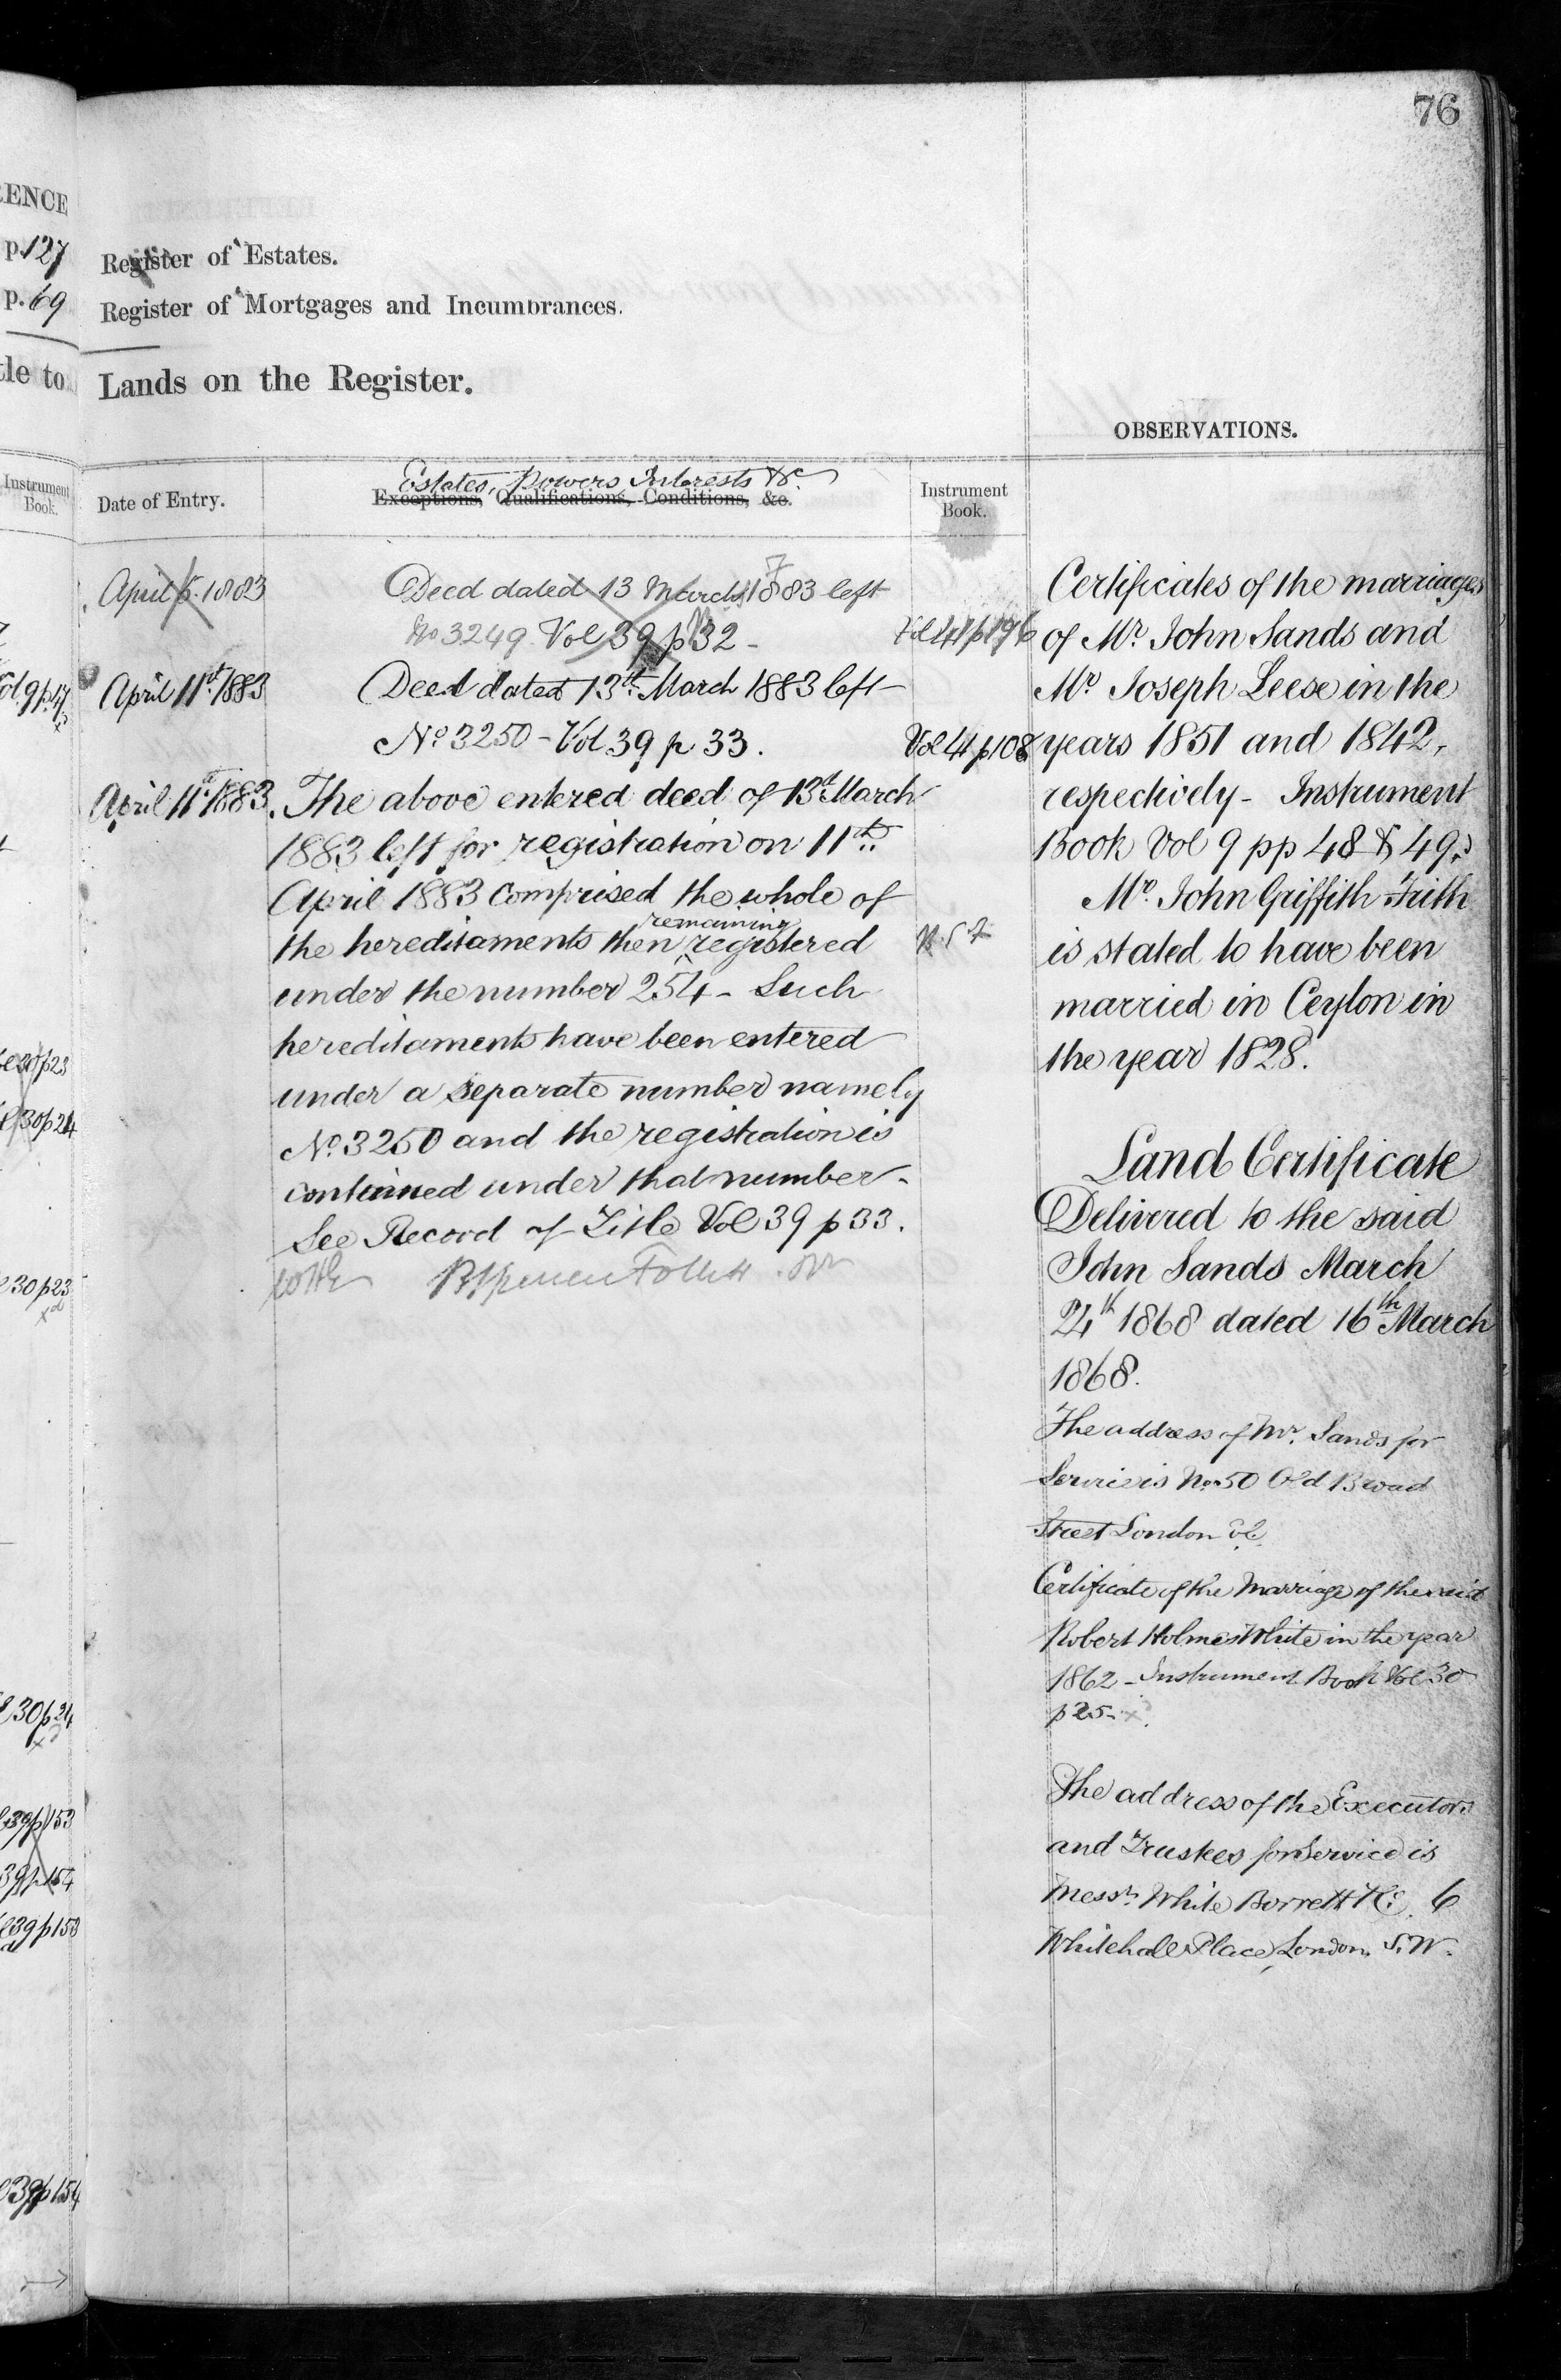 76
RENCE
p.127
p.69
tle to
Instrument
Book.
Vol 9 p 47
30 p 23
30 p 24
30 p 23
30 p 24
39 p 153
39 p 154
39 p 153
39 p 154
Register of Estates.
Register of Mortgages and Incumbrances.
Lands on the Register.
OBSERVATIONS.
Date of Entry.
Estates, Powers Interests &c
Exceptions, Qualifications, Conditions, &c.
Instrument
Book.
April 5. 1883
Deed dated 13 March 1883 left
No 3249 Vol 39 p 32 -
Vol 41 p 196
April 11th 1883
Deed dated 13th March 1883 left
No 3250 - Vol 39 p 33.
Vol 41 p 108
April 11th 1883.
The above entered deed of 13th March
1883 left for registration on 11th
April 1883 comprised the whole of
remaining
the hereditaments then registered
under the number 254 - Such
hereditaments have been entered
under a separate number namely
No. 3250 and the registration is
continued under that number.
See Record of Title Vol 39 p 33.
Certificates of the marriages
of Mr. John Sands and
Mr. Joseph Leese in the
years 1851 and 1842,
respectively - Instrument
Book Vol 9 pp 48 & 49.
Mr. John Griffith Frith
is stated to have been
married in Ceylon in
the year 1828.
Land Certificate
Delivered to the said
John Sands March
24th 1868 dated 16th March
1868.
The address of Mr. Sands for
Service is No. 50 Old Broad
Street London E.C.
Certificate of the Marriage of the said
Robert Holmes White in the year
1862 - Instrument Book Vol 30
p 25.
The address of the Executors
and Trustees for Service is
Messrs White Borrett & Co. 6
Whitehall Place, London, S.W.